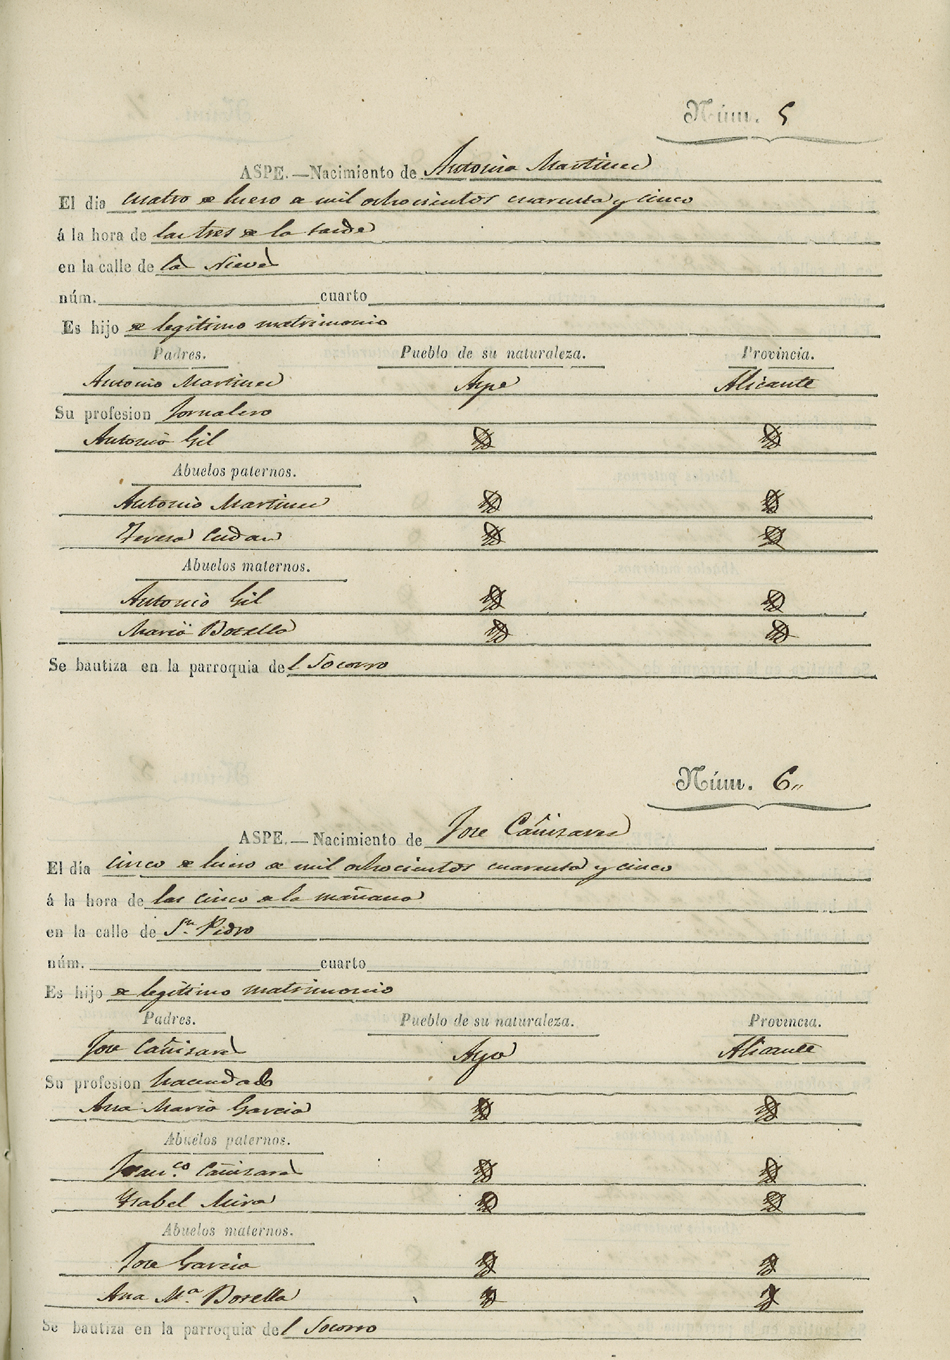 Núm. 5
ASPE.—Nacimiento de Antonia Martinez
El dia cuatro de Enero de mil ochocientos cuarenta y cinco
á la hora de las tres de la tarde
en la calle de la Nieve
núm. cuarto
Es hijo de legitimo matrimonio
Padres. Pueblo de su naturaleza. Provincia.
Antonio Martinez Aspe Alicante
Su profesion Jornalero
Antonia Gil
Abuelos paternos.
Antonio Martinez
Teresa
Abuelos maternos.
Antonio Gil
Maria Botella
Se bautiza en la parroquia del Socorro
Núm. 6
ASPE.—Nacimiento de Jose Cañizares
El dia cinco de Enero de mil ochocientos cuarenta y cinco
á la hora de las cinco de la mañana
en la calle de Sn. Pedro
núm. cuarto
Es hijo de legitimo matrimonio
Padres. Pueblo de su naturaleza. Provincia.
Jose Cañizares Aspe Alicante
Su profesion hacendado
Ana Maria Garcia
Abuelos paternos.
Franco. Cañizares
Ysabel Mira
Abuelos maternos.
Jose Garcia
Ana Ma. Botella
Se bautiza en la parroquia del Socorro